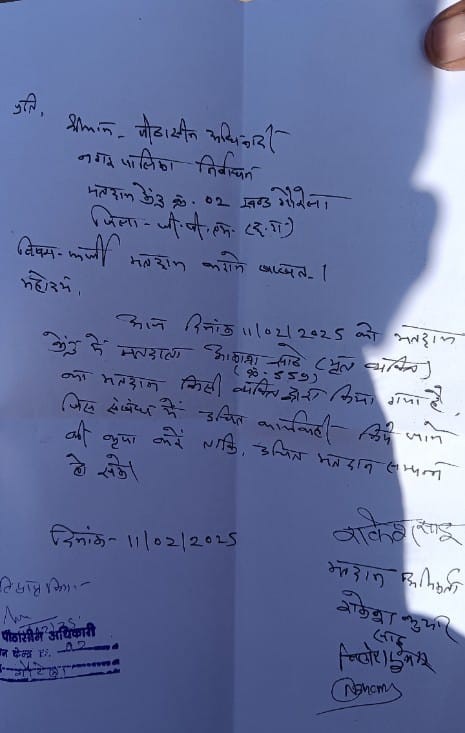 प्रति,
श्रीमान - पीठासीन अधिकारी
नगर पालिका निर्वाचन
मतदान केंद्र क्र. 02 खण्ड गौरेला
जिला - जी.पी.एम. (छ.ग.)
विषय - फर्जी मतदान करने बाबत ।
महोदय,
आज दिनांक 11/02/2025 को मतदान
केंद्र में मतदाता साहू (मृत व्यक्ति)
(क्र. 559)
का मतदान किसी व्यक्ति द्वारा किया गया है,
जिस संबंध में उचित कार्यवाही किये जाने
की कृपा करें ताकि, उचित मतदान सम्पन्न
हो सके।
दिनांक - 11/02/2025
राकेश साहू
मतदान अभिकर्ता
राकेश कुमार
साहू
पीठासीन अधिकारी
02
गौरेला